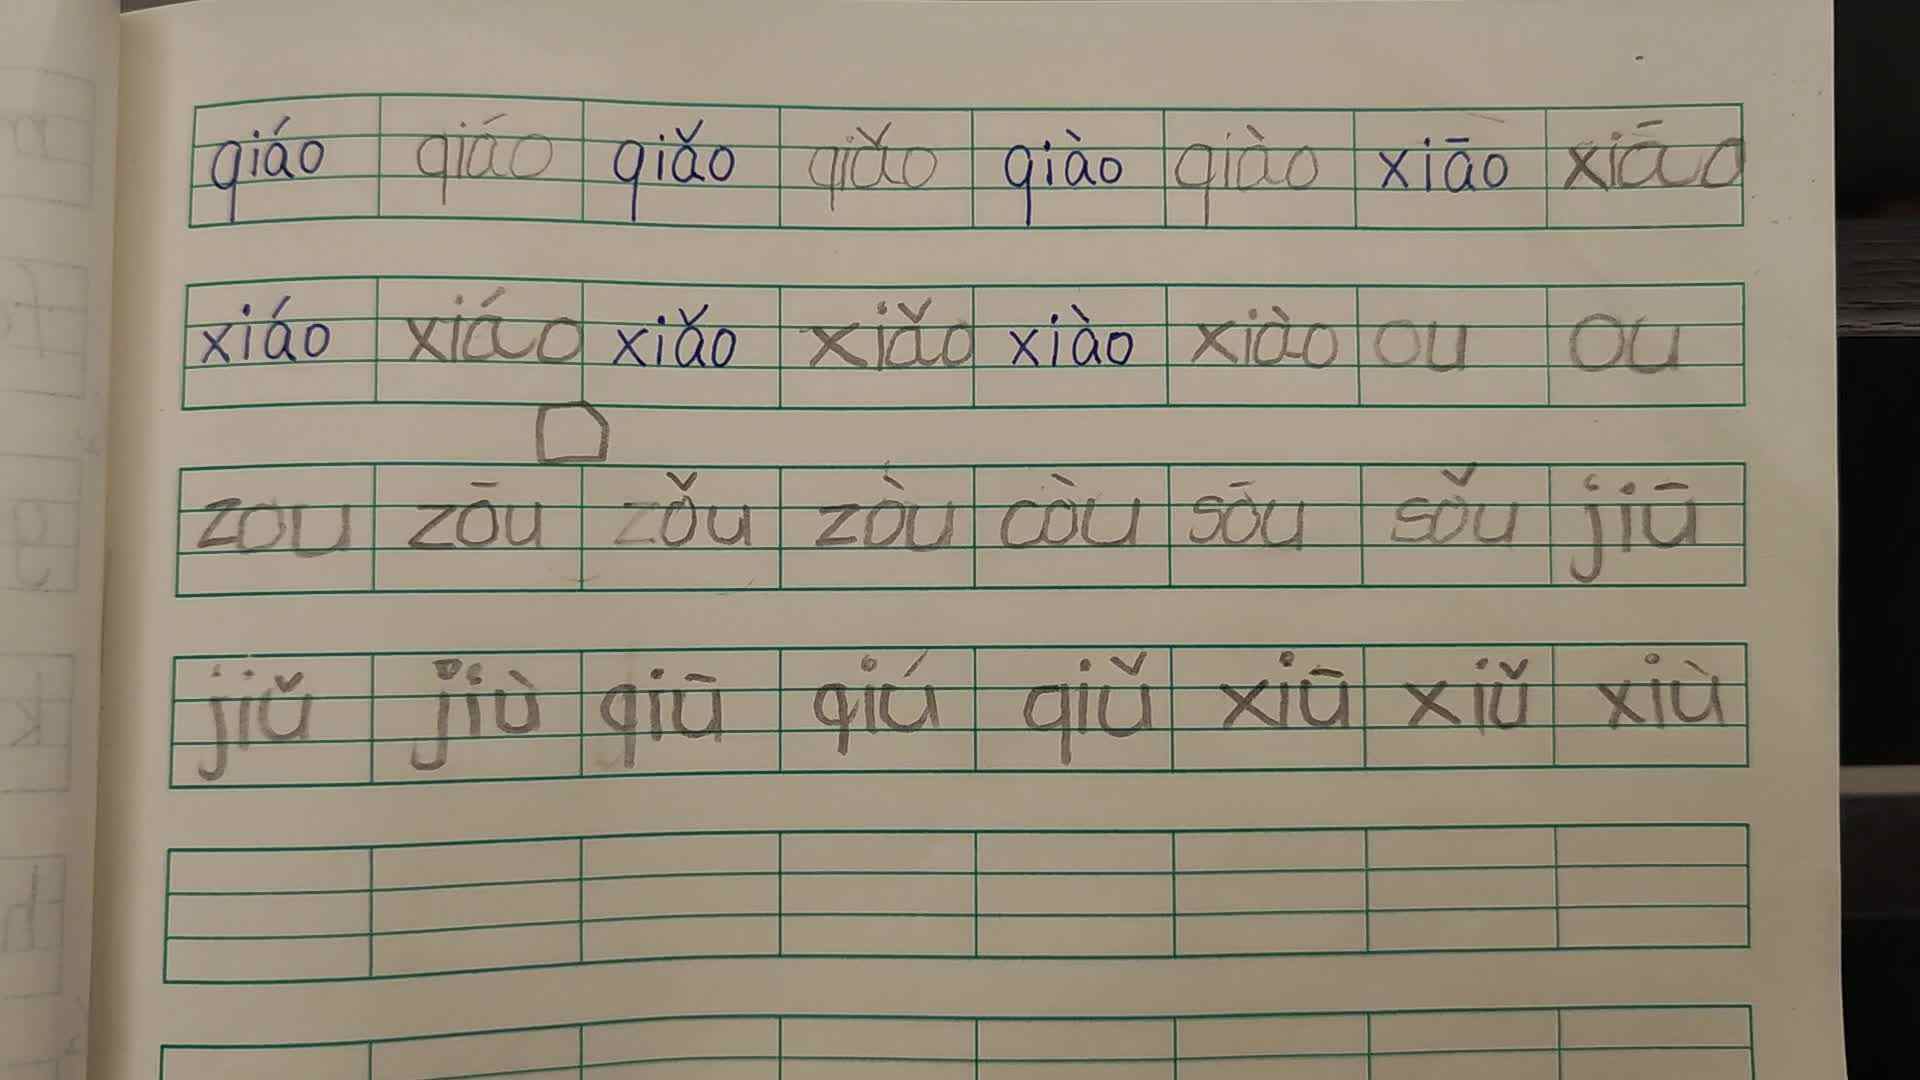 qiáo qiáo qiǎo qiǎo qiào qiào xiāo xiāo
xiáo xiáo xiǎo xiǎo xiào xiào ou ou
zou zōu zǒu zòu còu sōu sǒu jiū
jiǔ jiù qiū qiú qiǔ xiū xiǔ xiù